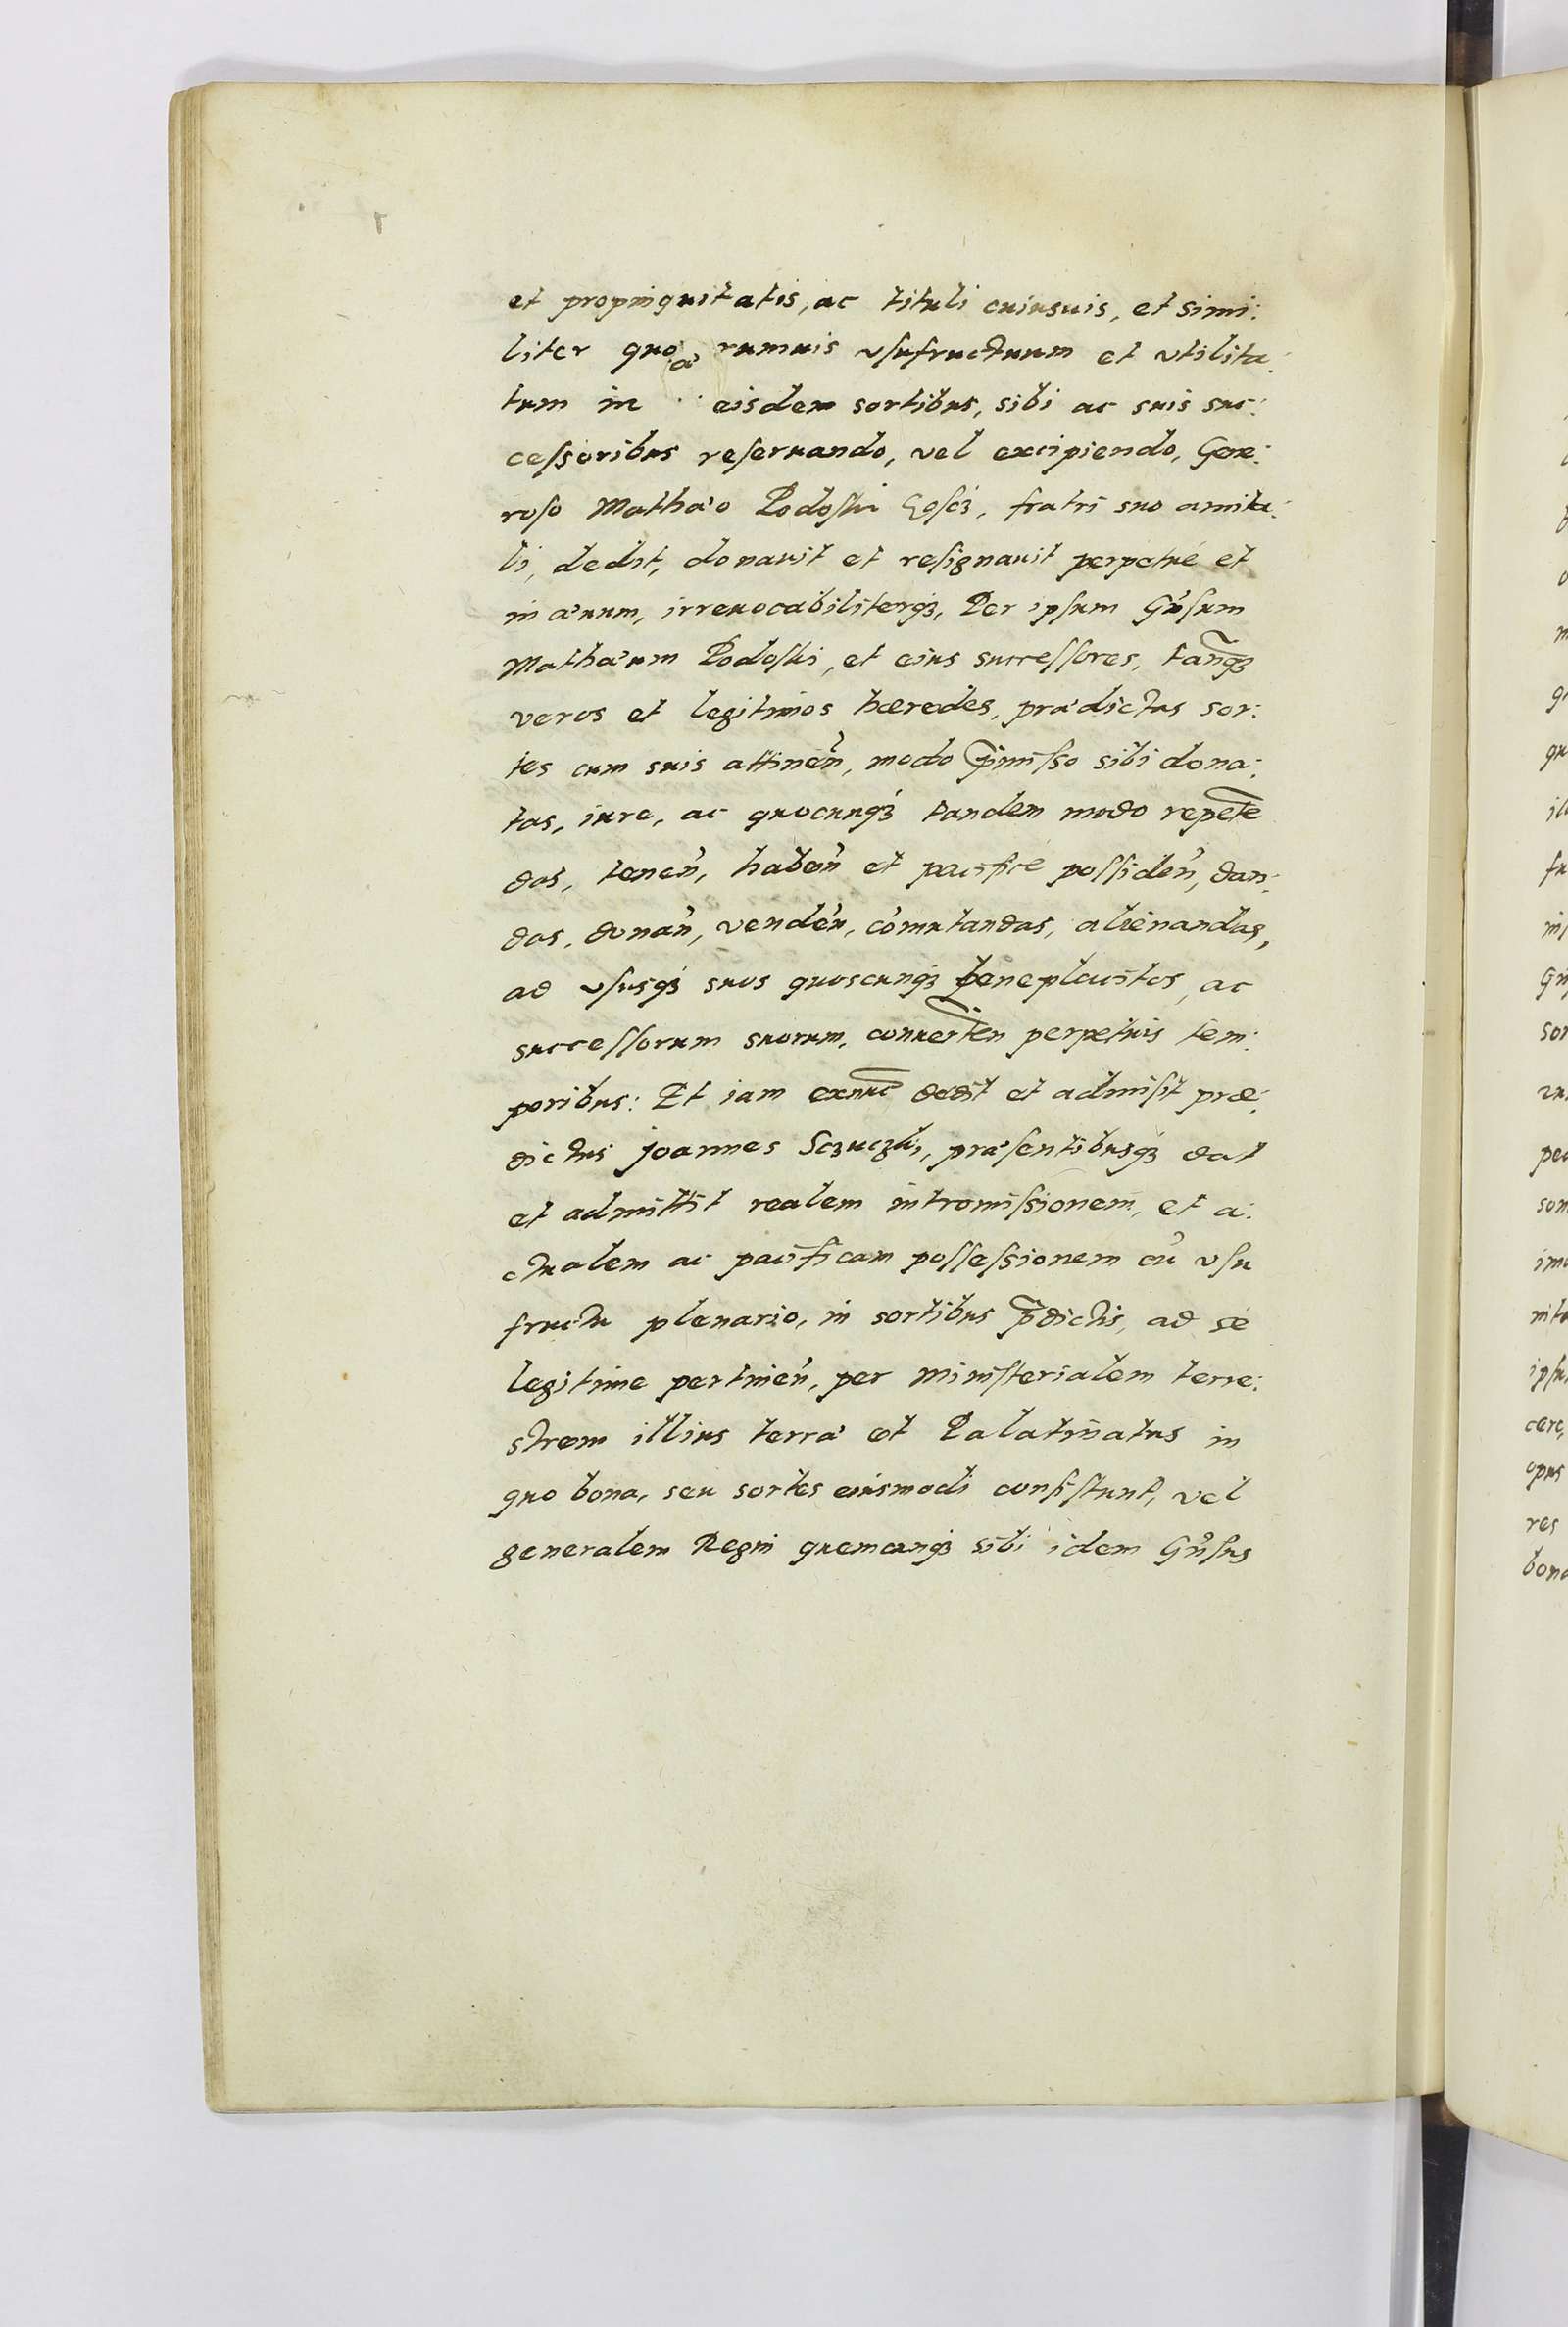 et propinquitatis, ac tituli cuiusuis, et simi:
liter quo rumuis vsufructuum et vtilita:
tum in eisdem sortibus, sibi ac suis suc:
cessoribus reseruando, vel excipiendo, Gene:
roso Mathæo Podoski fratri suo amita:
li, dedit, donauit et resignauit perpetué et
in æuum, irreuocabiliterqꝫ, Per ipsum Gn̄sum
Mathæum Podoski, et eius successores, tanqꝫ
veros et legitimos hæredes, prædictas sor:
tes cum suis attinen̄, modo p̄misso sibi dona:
tas, iure, ac quocunqꝫ tandem modo repetē
das, tenen̄, haben̄ et pacificè possiden̄, dan:
das, donan̄, venden̄, com̄utandas, alienandas,
ad vsusqꝫ suos quoscunqꝫ beneplacitos, ac
successorum suorum, conuerten̄ perpetuis tem:
poribus: Et iam exnūc dedit et admisit præ:
dictus Joannes Sczuczki, præsentibusqꝫ dat
et admittit realem intromissionem, et a:
ctualem ac pacificam possessionem cū vsu
fructu plenario, in sortibus p̄dictis, ad se
legitime pertinen̄, per Ministerialem terre:
strem illius terræ et Palatinatus in
quo bona, seu sortes eiusmodi consistunt, vel
generalem Regni quemcunqꝫ sibi idem Gn̄sus